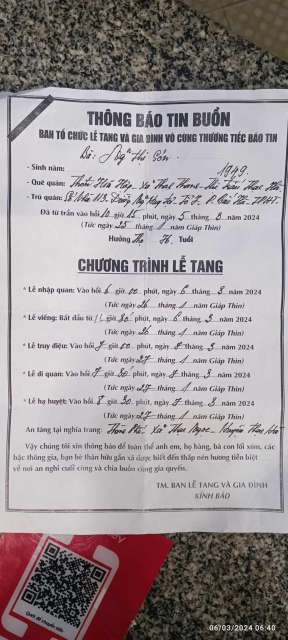 THÔNG BÁO TIN BUỒN
BAN TỔ CHỨC LỄ TANG VÀ GIA ĐÌNH VÔ CÙNG THƯƠNG TIẾC BÁO TIN
Thị
- Sinh năm: 1949.
- Quê quán:
- Trú quán:
Đã từ trần vào hồi 15 phút, ngày 5 tháng 3 năm 2024
(Tức ngày 25 tháng 1 năm Giáp Thìn)
Hưởng Thọ 76 Tuổi
CHƯƠNG TRÌNH LỄ TANG
* Lễ nhập quan: Vào hồi 6 giờ 00 phút, ngày 6 tháng 3 năm 2024
(Tức ngày 26 tháng 1 năm Giáp Thìn)
* Lễ viếng: Bắt đầu từ 30 phút, ngày 6 tháng 3 năm 2024
(Tức ngày 26 tháng 1 năm Giáp Thìn)
* Lễ truy điệu: Vào hồi 7 giờ 00 phút, ngày 7 tháng 3 năm 2024
(Tức ngày 27 tháng 1 năm Giáp Thìn)
* Lễ di quan: Vào hồi 7 giờ 30 phút, ngày 7 tháng 3 năm 2024
(Tức ngày 27 tháng 1 năm Giáp Thìn)
* Lễ hạ huyệt: Vào hồi 8 giờ 30 phút, ngày 7 tháng 3 năm 2024
(Tức ngày 27 tháng 1 năm Giáp Thìn)
An táng tại nghĩa trang:
Vậy chúng tôi xin thông báo để toàn thể anh em, họ hàng, bà con lối xóm, các
bậc thông gia, bạn bè thân hữu gần xa được biết đến thắp nén hương tiễn biệt
về nơi an nghỉ cuối cùng và chia buồn cùng gia quyến.
TM. BAN LỄ TANG VÀ GIA ĐÌNH
KÍNH BÁO
Quét để chuyển tiền
06/03/2024 06:40